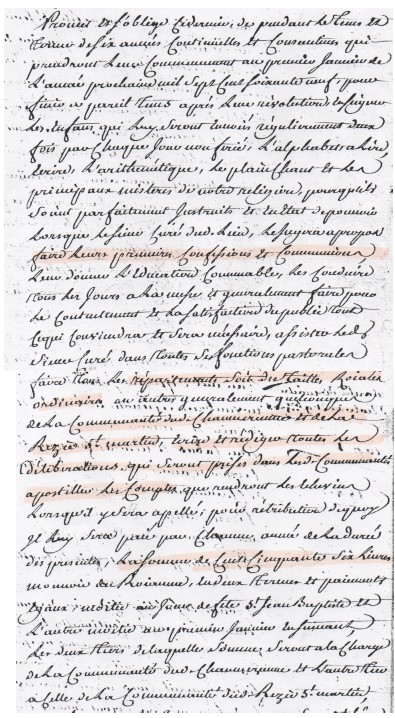 Promet et s'oblige Ce dernier, de pendant le tems et
terme de six années Continuelles et Consecutives qui
prendront Leur Commencement au premier Janvier de
L'année prochaine mil Sept Cent soixante neuf, pour
finir a pareil tems après Leur révolution, Enseigner
Les Enfans qui Luy Seront Envoiés régulierement deux
fois par Chaque Jour non feriés, L'alphabet, a Lire,
écrire, L'arithmétique, Le plain Chant et Les
principaux mistères de notre religion, pour qu'ils
Soient parfaitement Instruits et en Etat de pouvoir
Lorsque le Sieur Curé dud. Lieu, Le Jugera a propos
faire Leurs premieres Confessions et Communions
Leur donner L'Education Convenable, Les Conduire
tous Les Jours a La messe et generalement faire pour
Le Contentement et La Satisfaction du public tout
Ce qui Conviendra et Sera necessaire, assister Led.
Sieur Curé dans toutes Ses fonctions pastorales
faire tous Les répartements Soit des tailles Roiales
ordinaires ou autres generalement quelconques
de La Communauté de et de La
Rezie St. martin, Ecrire et rédiger toutes Les
déliberations qui Seront prises dans Lesd. Communautés
apostiller Les Comptes que rendront Les Elus
Lorsqu'il y Sera apellé; pour retribution de quoy
Il Luy Sera paié par Chacune année de La durée
des presentes, La Somme de Cent Cinquante Six Livres
monnoie du Roiaume, en deux termes et paiements
Egaux; moitié au Jour de fête St. Jean Baptiste et
L'autre moitié au premier Janvier Ensuivant,
Les deux tiers de laquelle Somme Seront a La Charge
de La Communauté dud. et L'autre tier
a Celle de La Communauté dud. Rezie St. martin,